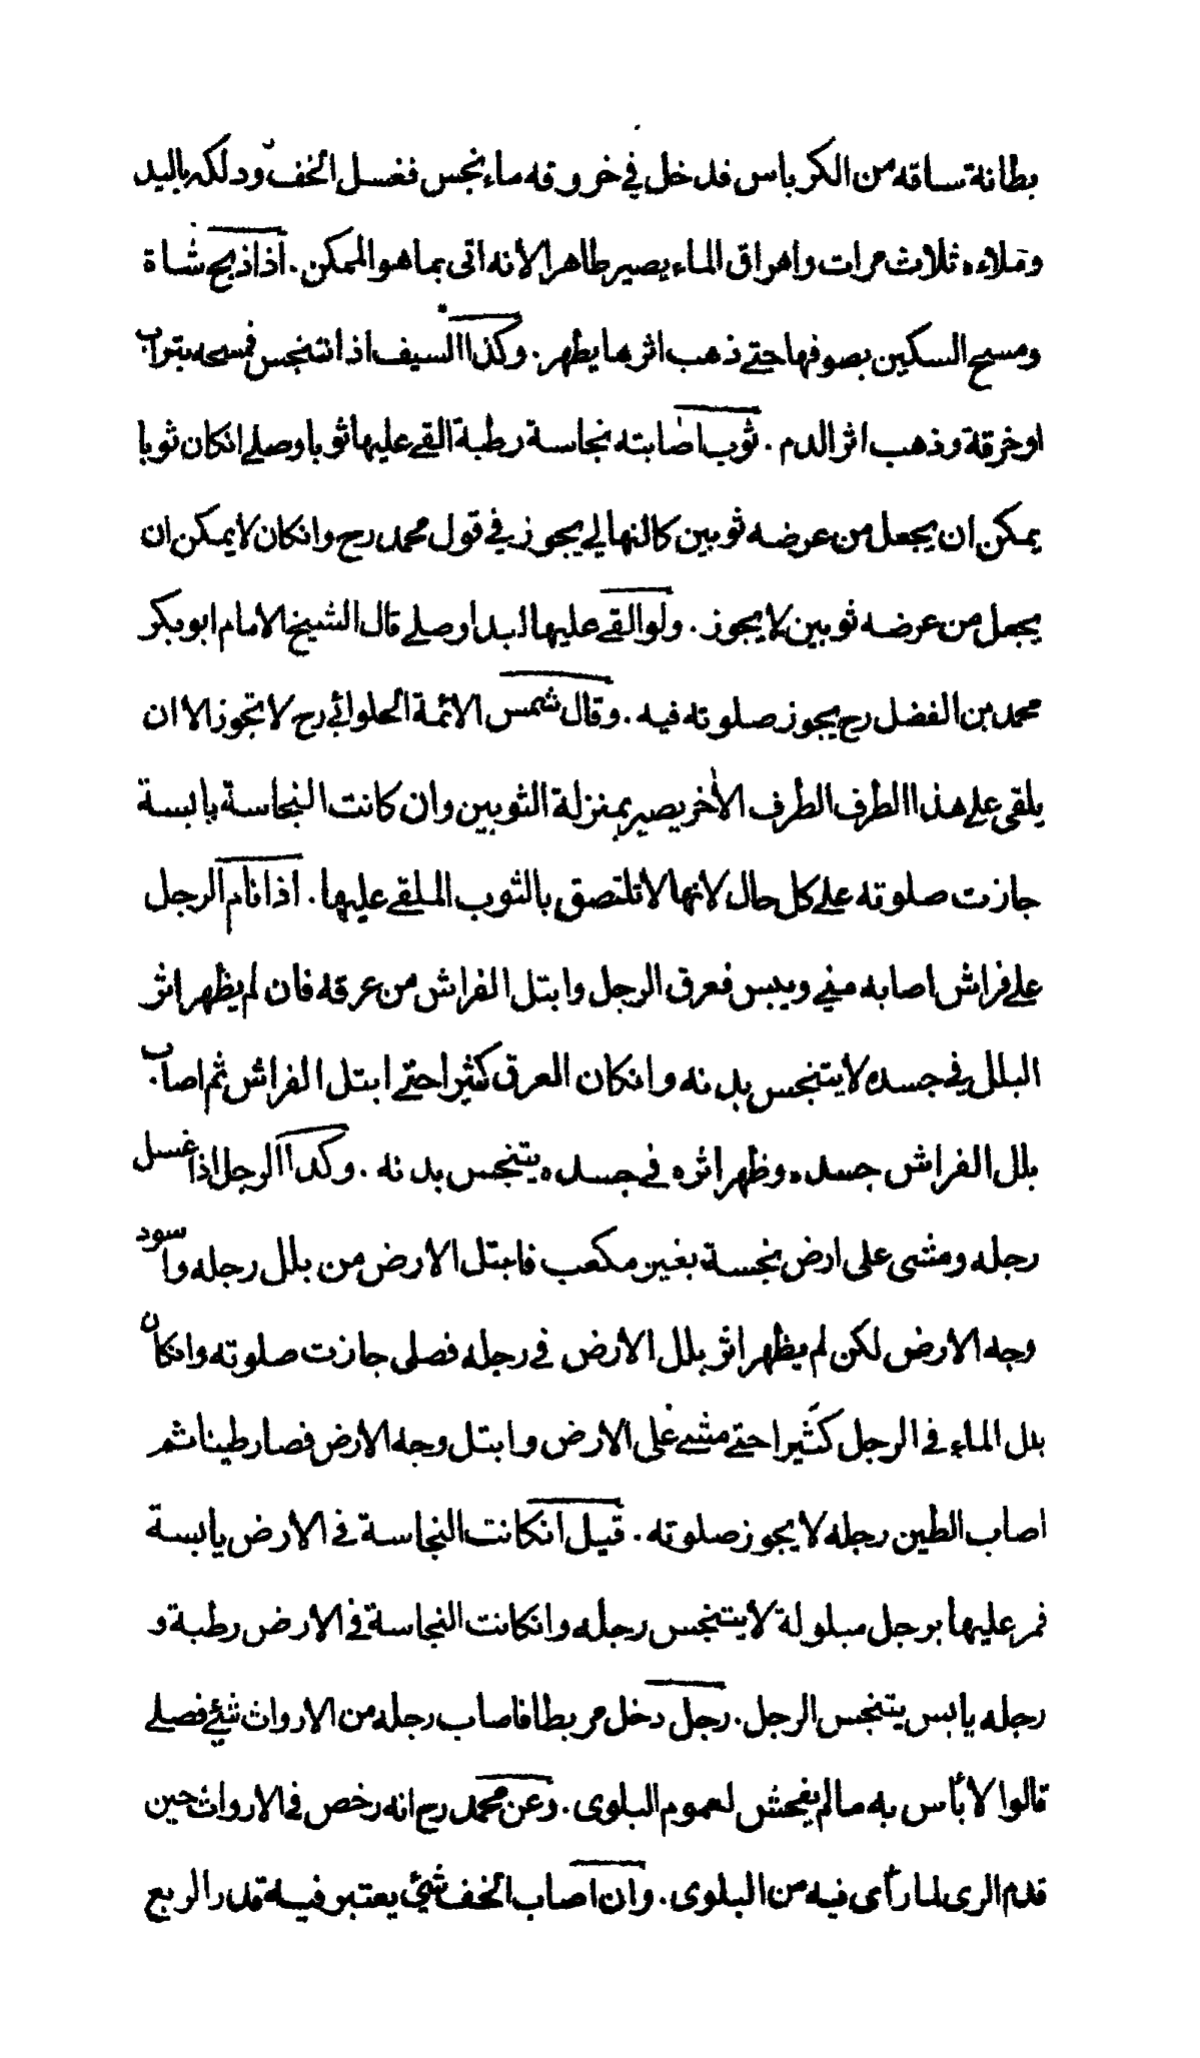 بطانة ساقه من الكرباس فدخل في خروقه ماء نجس فغسل الخف ودلكه باليد
وملاءه ثلاث مرات واهراق الماء يصير طاهرا لانه اتى بما هو الممكن . اذا ذبح شاة
ومسح السكين بصوفها حتے ذهب اثرها يطهر . وكذا السيف اذا تنجس فمسحه بتراب
او خرقة وذهب اثر الدم . ثوب اصابته نجاسة رطبة القے عليها ثوبا وصلے انكان ثوبا
يمكن ان يجعل من عرضه ثوبين كالنهالي يجوز في قول محمد رح وانكان لا يمكن ان
يجعل من عرضه ثوبين لا يجوز . ولو القے عليها لبدا وصلے قال الشيخ الامام ابو بكر
محمد بن الفضل رح يجوز صلوته فيه . وقال شمس الائمة الحلوائي رح لا تجوز الا ان
يلقى علے هذا الطرف الطرف الاخر يصير بمنزلة الثوبين وان كانت النجاسة يابسة
جازت صلوته علے كل حال لانها لا تلتصق بالثوب الملقے عليها . اذا نام الرجل
علے فراش اصابه مني ويبس فعرق الرجل وابتل الفراش من عرقه فان لم يظهر اثر
البلل في جسده لا يتنجس بدنه وانكان العرق كثيرا حتے ابتل الفراش ثم اصاب
بلل الفراش جسده وظهر اثره في جسده يتنجس بدنه . وكذا الرجل اذا غسل
رجله ومشى على ارض نجسة بغير مكعب فابتل الارض من بلل رجله واسود
وجه الارض لكن لم يظهر اثر بلل الارض في رجله فصلى جازت صلوته وانكان
بلل الماء في الرجل كثيرا حتے مشے على الارض وابتل وجه الارض فصار طينا ثم
اصاب الطين رجله لا يجوز صلوته . قيل انكانت النجاسة في الارض يابسة
فمر عليها برجل مبلولة لا يتنجس رجله وانكانت النجاسة في الارض رطبة و
رجله يابس يتنجس الرجل . رجل دخل مربطا فاصاب رجله من الارواث شئ فصلے
قالوا لا بأس به مالم يفحش لعموم البلوى . وعن محمد رح انه رخص في الارواث حين
قدم الرى لما رأى فيه من البلوى . وان اصاب الخف شئ يعتبر فيه قدر الربع